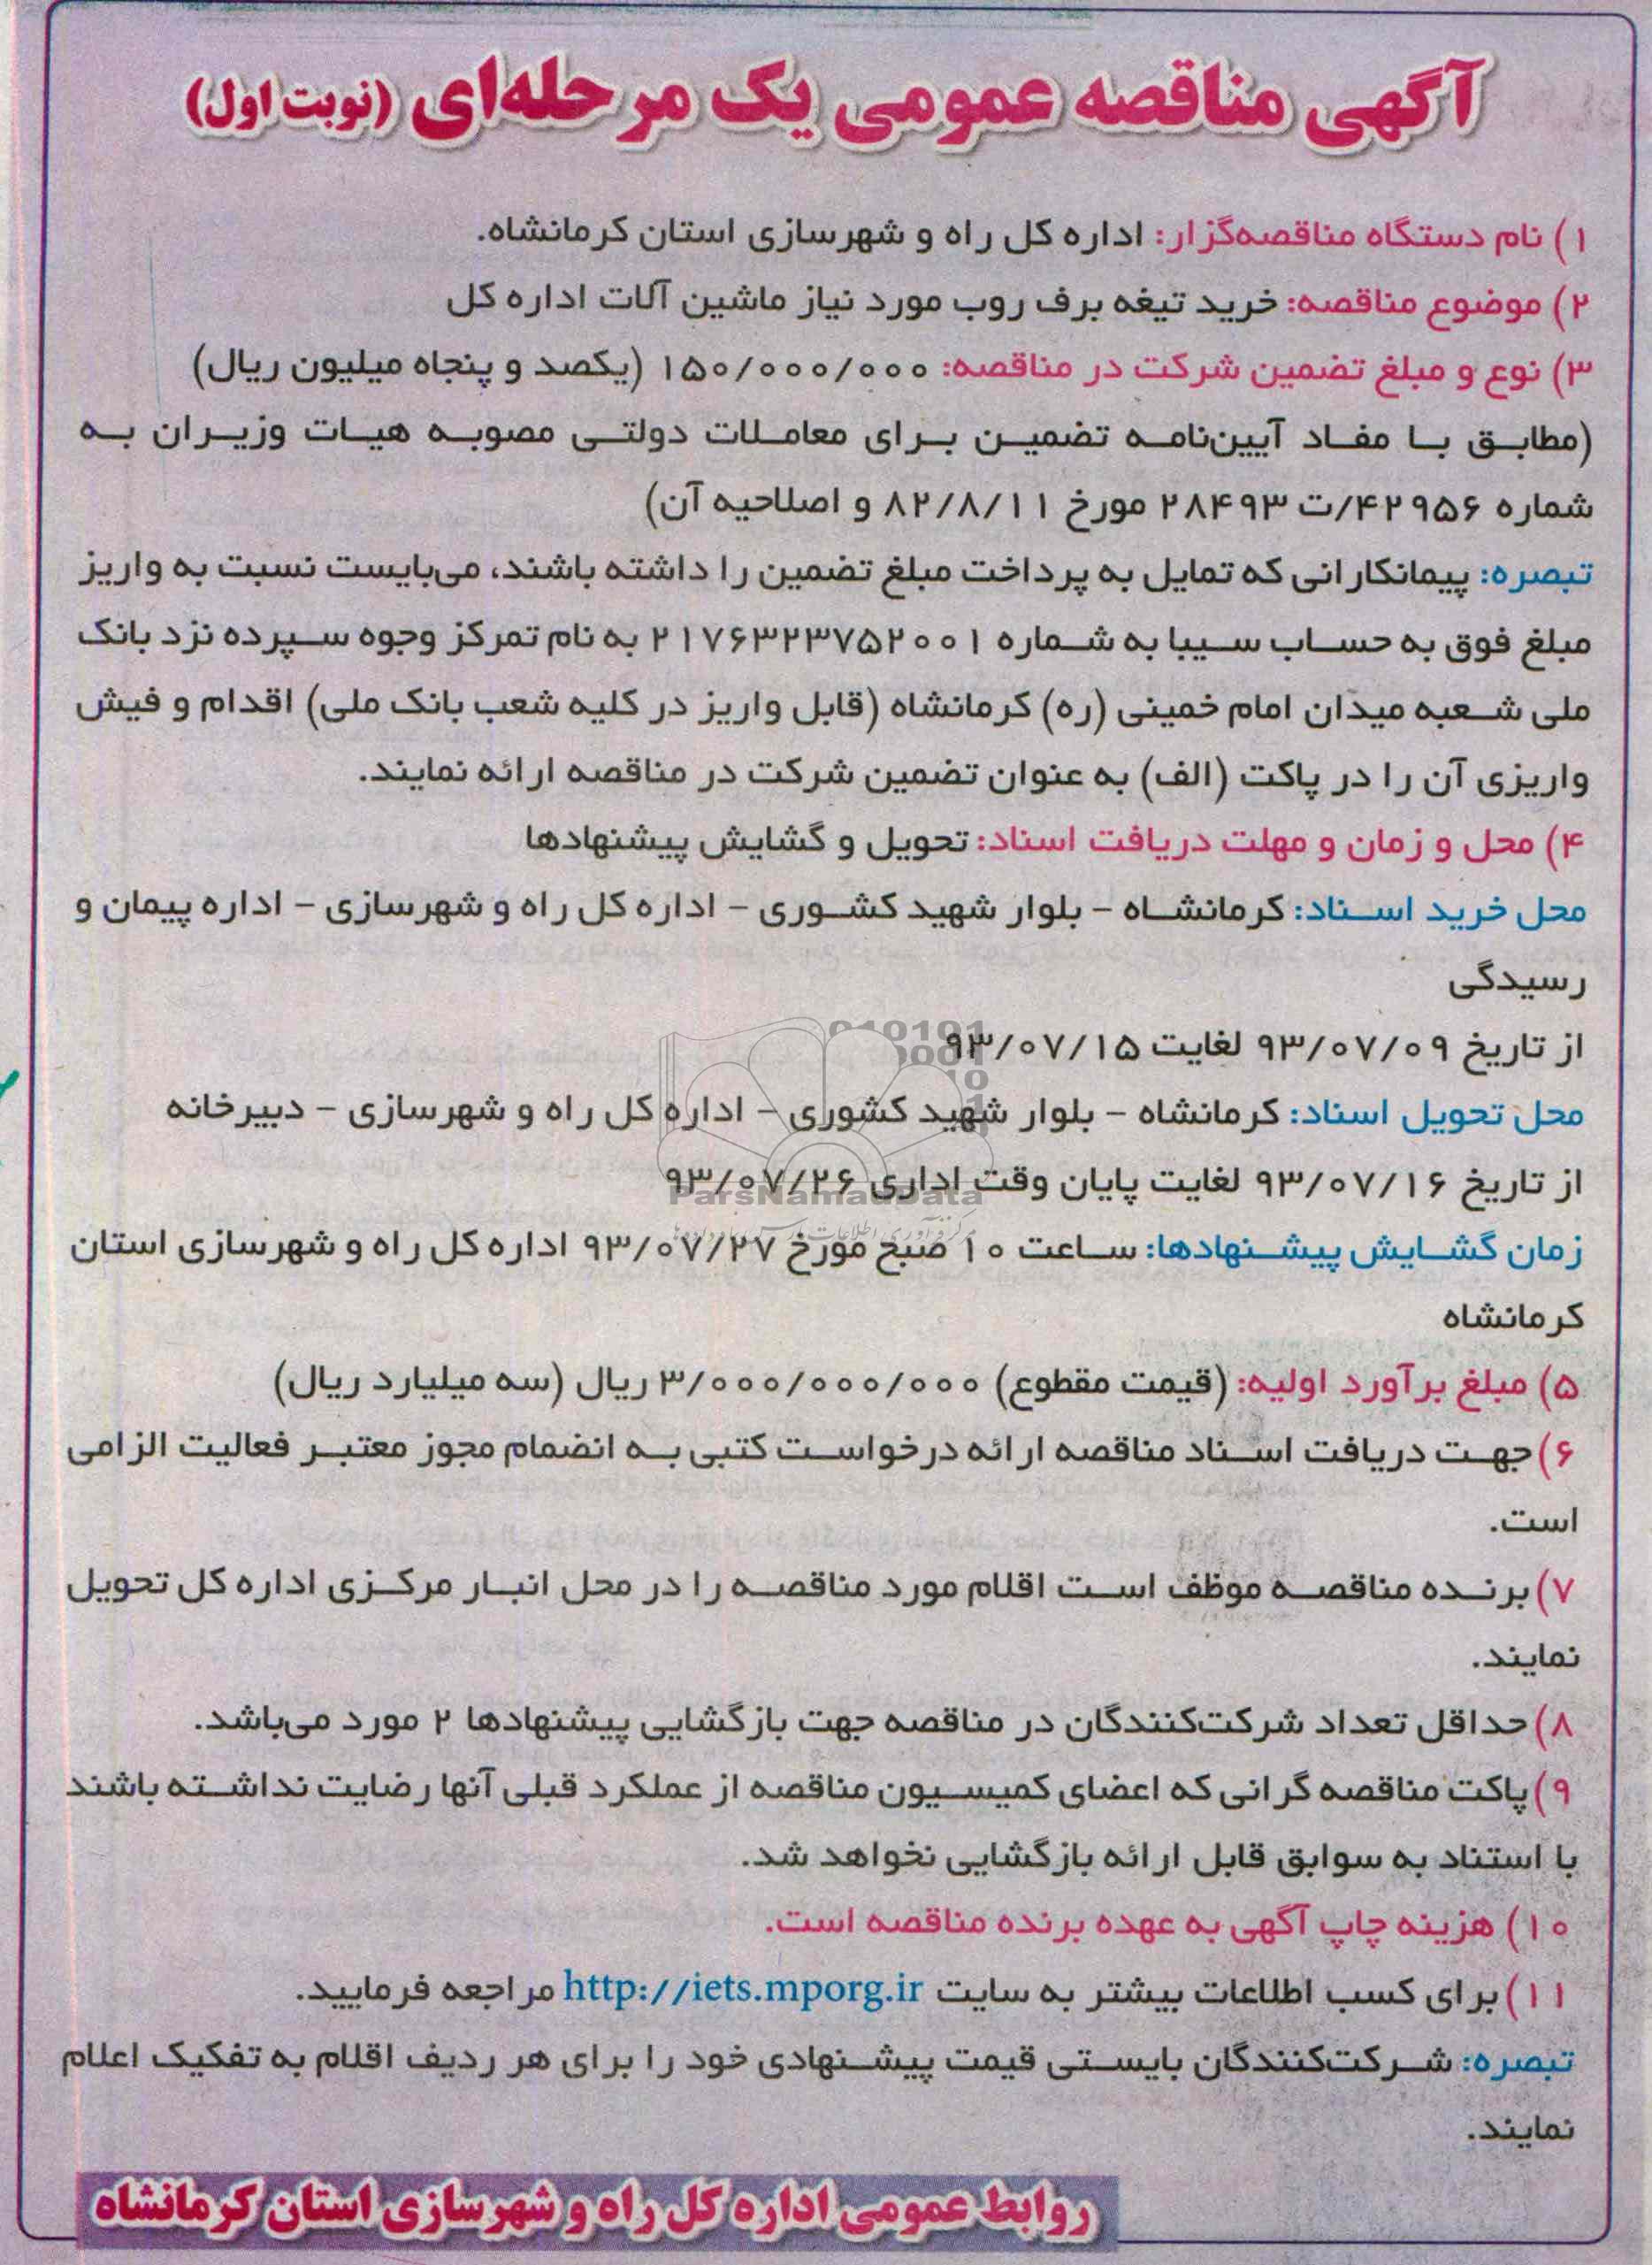 آگهی مناقصه عمومی یک مرحله‌ای (نوبت اول)
۱) نام دستگاه مناقصه‌گزار: اداره کل راه و شهرسازی استان کرمانشاه.
۲) موضوع مناقصه: خرید تیغه برف روب مورد نیاز ماشین آلات اداره کل
۳) نوع و مبلغ تضمین شرکت در مناقصه: ۱۵۰/۰۰۰/۰۰۰ (یکصد و پنجاه میلیون ریال)
(مطابق با مفاد آیین‌نامه تضمین برای معاملات دولتی مصوبه هیات وزیران به
شماره ۴۲۹۵۶/ت ۲۸۴۹۳ مورخ ۸۲/۸/۱۱ و اصلاحیه آن)
تبصره: پیمانکارانی که تمایل به پرداخت مبلغ تضمین را داشته باشند، می‌بایست نسبت به واریز
مبلغ فوق به حساب سیبا به شماره ۲۱۷۶۳۲۳۷۵۲۰۰۱ به نام تمرکز وجوه سپرده نزد بانک
ملی شعبه میدان امام خمینی (ره) کرمانشاه (قابل واریز در کلیه شعب بانک ملی) اقدام و فیش
واریزی آن را در پاکت (الف) به عنوان تضمین شرکت در مناقصه ارائه نمایند.
۴) محل و زمان و مهلت دریافت اسناد: تحویل و گشایش پیشنهادها
محل خرید اسناد: کرمانشاه - بلوار شهید کشوری - اداره کل راه و شهرسازی - اداره پیمان و
رسیدگی
از تاریخ ۹۳/۰۷/۰۹ لغایت ۹۳/۰۷/۱۵
محل تحویل اسناد: کرمانشاه - بلوار شهید کشوری - اداره کل راه و شهرسازی - دبیرخانه
از تاریخ ۹۳/۰۷/۱۶ لغایت پایان وقت اداری ۹۳/۰۷/۲۶
ParsNamadData
زمان گشایش پیشنهادها: ساعت ۱۰ صبح مورخ ۹۳/۰۷/۲۷ اداره کل راه و شهرسازی استان
کرمانشاه
۵) مبلغ برآورد اولیه: (قیمت مقطوع) ۳/۰۰۰/۰۰۰/۰۰۰ ریال (سه میلیارد ریال)
۶) جهت دریافت اسناد مناقصه ارائه درخواست کتبی به انضمام مجوز معتبر فعالیت الزامی
است.
۷) برنده مناقصه موظف است اقلام مورد مناقصه را در محل انبار مرکزی اداره کل تحویل
نمایند.
۸) حداقل تعداد شرکت‌کنندگان در مناقصه جهت بازگشایی پیشنهادها ۲ مورد می‌باشد.
۹) پاکت مناقصه گرانی که اعضای کمیسیون مناقصه از عملکرد قبلی آنها رضایت نداشته باشند
با استناد به سوابق قابل ارائه بازگشایی نخواهد شد.
۱۰) هزینه چاپ آگهی به عهده برنده مناقصه است.
۱۱) برای کسب اطلاعات بیشتر به سایت http://iets.mporg.ir مراجعه فرمایید.
تبصره: شرکت‌کنندگان بایستی قیمت پیشنهادی خود را برای هر ردیف اقلام به تفکیک اعلام
نمایند.
روابط عمومی اداره کل راه و شهرسازی استان کرمانشاه